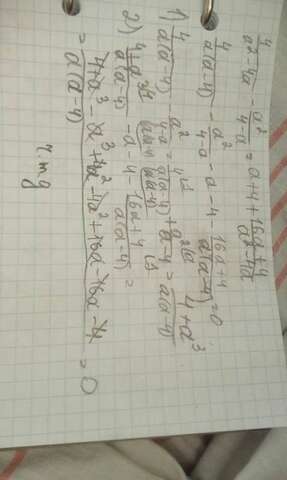 4/(a²-4a) - a²/(4-a) = a+4+ (16a+4)/(a²-4a)
4/(a(a-4)) - a²/(4-a) - a - 4 (16a+4)/(a(a-4)) = 0
1) 4/(a(a-4)) - a²/(4-a) = 4/(a(a-4)) + a²/(a-4) = (4+a³)/(a(a-4))
2) (4+a³)/(a(a-4)) - a - 4 - (16a+4)/(a(a-4)) =
= (4+a³-a³+4a²-4a²+16a-16a-4)/(a(a-4)) = 0